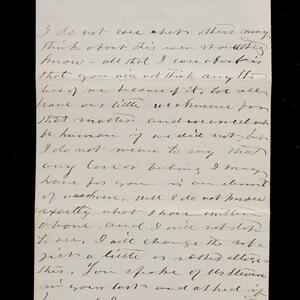 I do not care what others may
think about this
know - all that I care about is
that you will not think any the
less of me because of it, we all
have our little weakness for
that matter and would not
be human if we did not, but
I do not mean to say that
any love or feeling I may
have for you is an element
of weakness, well I do not know
exactly what I have written
above, and I will not stop
to see, I will change the sub-
ject a little or rather altoge-
this. You spoke of Mr Stevens
in your last and asked if